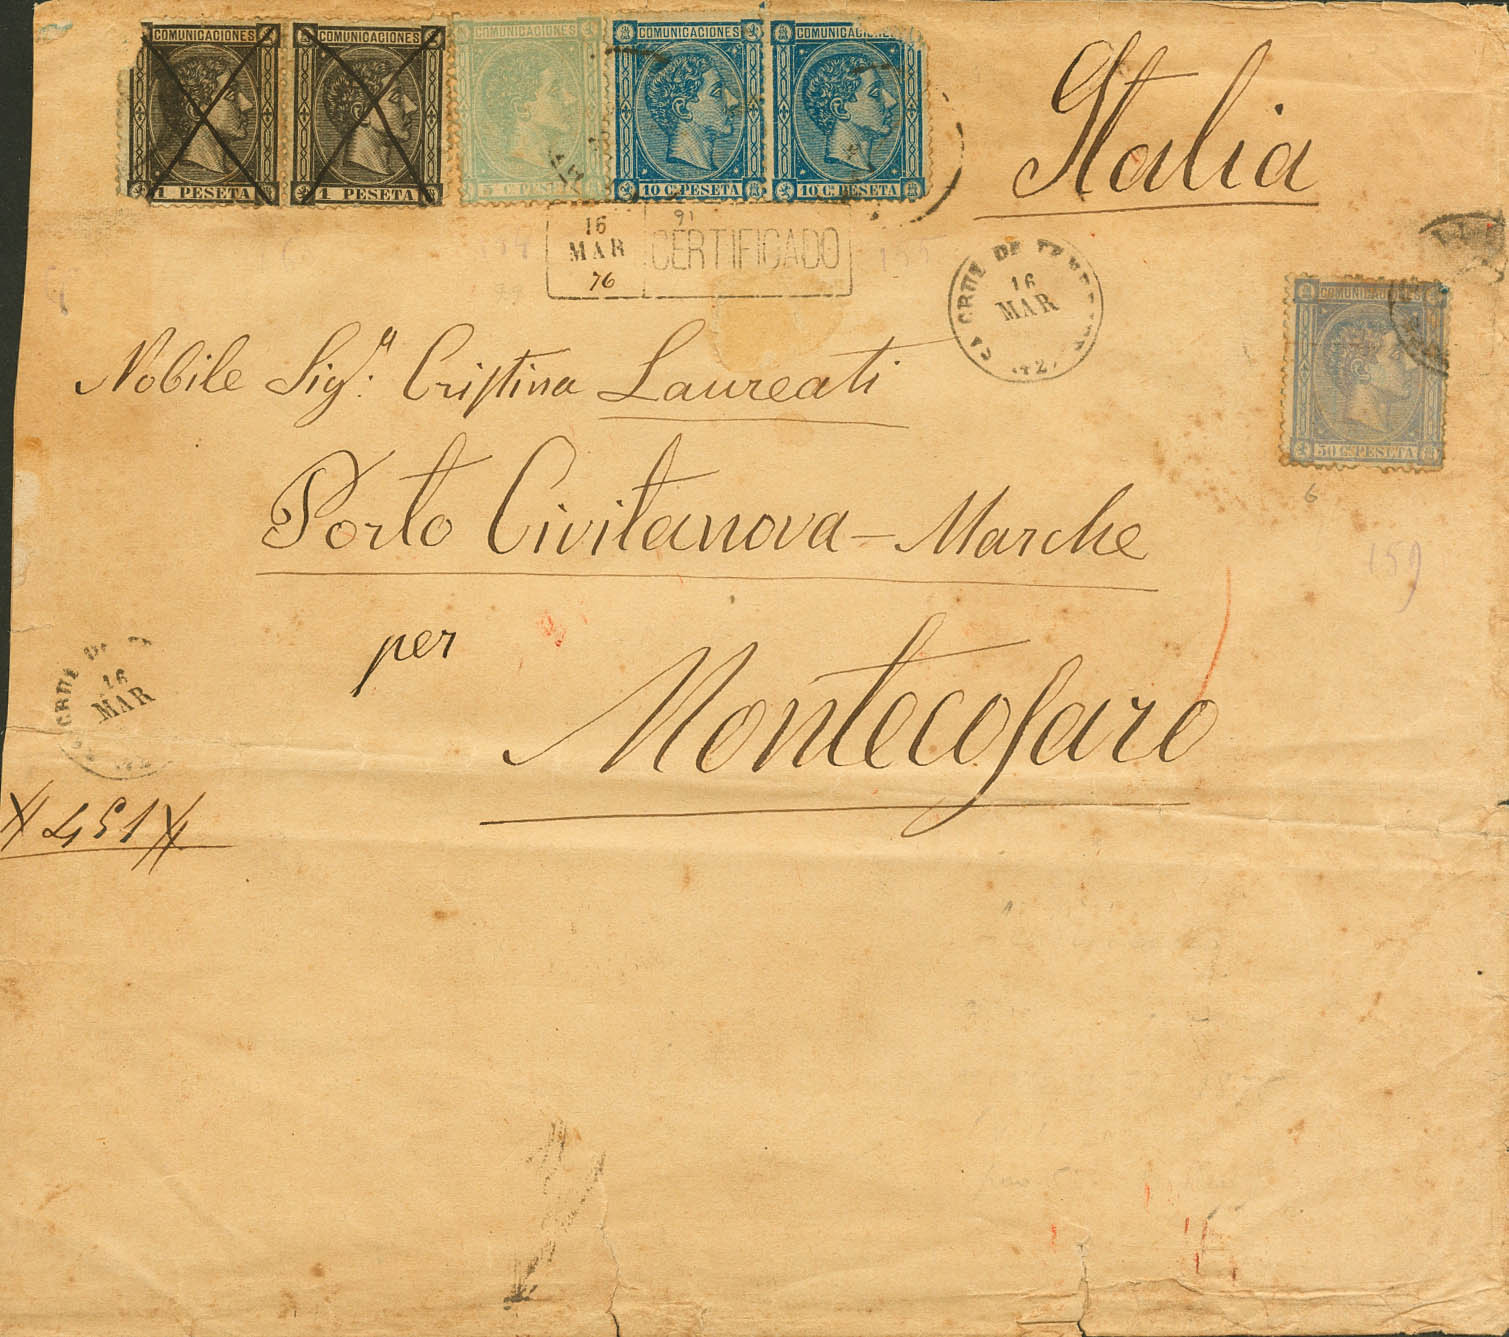 COMUNICACIONES COMUNICACIONES COMUNICACIONES COMUNICACIONES COMUNICACIONES
1 PESETA 1 PESETA 5 C. PESETA 10 C. PESETA 10 C. PESETA
Italia
16
MAR
76
91
CERTIFICADO
CRUZ DE
16
MAR
(42)
COMUNICACIONES
50 C. PESETA
6
159
Nobile Sig.ª Cristina Laureati
Porto Civitanova - Marche
per
Montecosaro
CRUZ DE
16
MAR
451